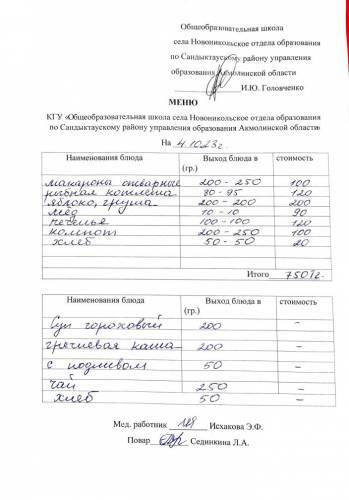 Общеобразовательная школа
села Новоникольское отдела образования
по Сандыктаускому району управления
образования Акмолинской области
И.Ю. Головченко
МЕНЮ
КГУ «Общеобразовательная школа села Новоникольское отдела образования
по Сандыктаускому району управления образования Акмолинской области»
На 4.10.23г.
Наименования блюда Выход блюда в (гр.) стоимость
макароны отварные 200 - 250 100
рыбная котлета 80 - 95 120
яблоко, груша 200 - 200 200
мёд 10 - 10 90
печенье 100 - 100 120
компот 200 - 250 100
хлеб 50 - 50 20
Итого 750тг.
Наименования блюда Выход блюда в (гр.) стоимость
Суп гороховый 200 –
гречневая каша 200 –
с подливом 50 –
чай 250 –
хлеб 50 –
Мед. работник Исхакова Э.Ф.
Повар Сединкина Л.А.